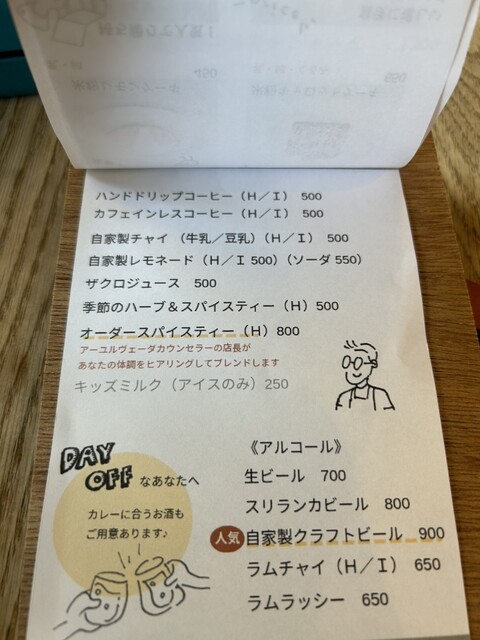 ハンドドリップコーヒー（Ｈ／Ｉ） 500
カフェインレスコーヒー（Ｈ／Ｉ） 500
自家製チャイ （牛乳／豆乳）（Ｈ／Ｉ） 500
自家製レモネード（Ｈ／Ｉ 500）（ソーダ 550）
ザクロジュース 500
季節のハーブ＆スパイスティー（Ｈ）500
オーダースパイスティー（Ｈ）800
アーユルヴェーダカウンセラーの店長が
あなたの体調をヒアリングしてブレンドします
キッズミルク（アイスのみ）250
DAY
OFF なあなたへ
カレーに合うお酒も
ご用意あります♪
《アルコール》
生ビール 700
スリランカビール 800
人気 自家製クラフトビール 900
ラムチャイ（Ｈ／Ｉ） 650
ラムラッシー 650